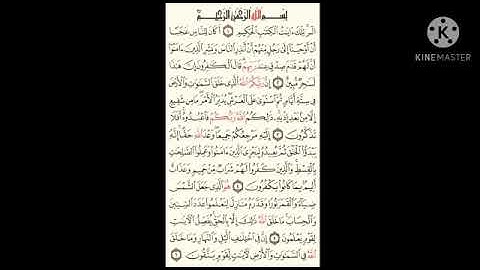 بِسْمِ اللَّهِ الرَّحْمَٰنِ الرَّحِيمِ
الٓر تِلْكَ آيَاتُ الْكِتَابِ الْحَكِيمِ ۝ أَكَانَ لِلنَّاسِ عَجَبًا
أَنْ أَوْحَيْنَا إِلَىٰ رَجُلٍ مِنْهُمْ أَنْ أَنْذِرِ النَّاسَ وَبَشِّرِ الَّذِينَ آمَنُوا
أَنَّ لَهُمْ قَدَمَ صِدْقٍ عِنْدَ رَبِّهِمْ قَالَ الْكَافِرُونَ إِنَّ هَٰذَا
لَسَاحِرٌ مُبِينٌ ۝ إِنَّ رَبَّكُمُ اللَّهُ الَّذِي خَلَقَ السَّمَاوَاتِ وَالْأَرْضَ
فِي سِتَّةِ أَيَّامٍ ثُمَّ اسْتَوَىٰ عَلَى الْعَرْشِ يُدَبِّرُ الْأَمْرَ مَا مِنْ شَفِيعٍ
إِلَّا مِنْ بَعْدِ إِذْنِهِ ذَٰلِكُمُ اللَّهُ رَبُّكُمْ فَاعْبُدُوهُ أَفَلَا
تَذَكَّرُونَ ۝ إِلَيْهِ مَرْجِعُكُمْ جَمِيعًا وَعْدَ اللَّهِ حَقًّا إِنَّهُ
يَبْدَأُ الْخَلْقَ ثُمَّ يُعِيدُهُ لِيَجْزِيَ الَّذِينَ آمَنُوا وَعَمِلُوا الصَّالِحَاتِ
بِالْقِسْطِ وَالَّذِينَ كَفَرُوا لَهُمْ شَرَابٌ مِنْ حَمِيمٍ وَعَذَابٌ
أَلِيمٌ بِمَا كَانُوا يَكْفُرُونَ ۝ هُوَ الَّذِي جَعَلَ الشَّمْسَ
ضِيَاءً وَالْقَمَرَ نُورًا وَقَدَّرَهُ مَنَازِلَ لِتَعْلَمُوا عَدَدَ السِّنِينَ
وَالْحِسَابَ مَا خَلَقَ اللَّهُ ذَٰلِكَ إِلَّا بِالْحَقِّ يُفَصِّلُ الْآيَاتِ
لِقَوْمٍ يَعْلَمُونَ ۝ إِنَّ فِي اخْتِلَافِ اللَّيْلِ وَالنَّهَارِ وَمَا خَلَقَ
اللَّهُ فِي السَّمَاوَاتِ وَالْأَرْضِ لَآيَاتٍ لِقَوْمٍ يَتَّقُونَ ۝
KINEMASTER